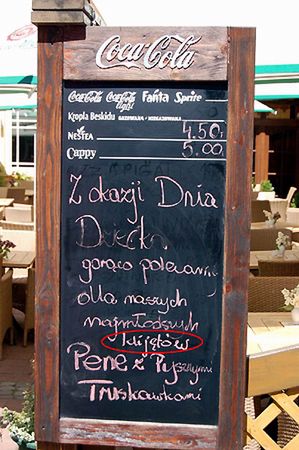 Coca-Cola
Coca-Cola Coca-Cola light Fanta Sprite
Kropla Beskidu GAZOWANA · NIEGAZOWANA
NESTEA 4.50,-
Cappy 5.00
Z okazji Dnia
Dziecka
gorąco polecamy
dla naszych
najmłodszych
klijętów
Pene z Pysznymi
Truskawkami